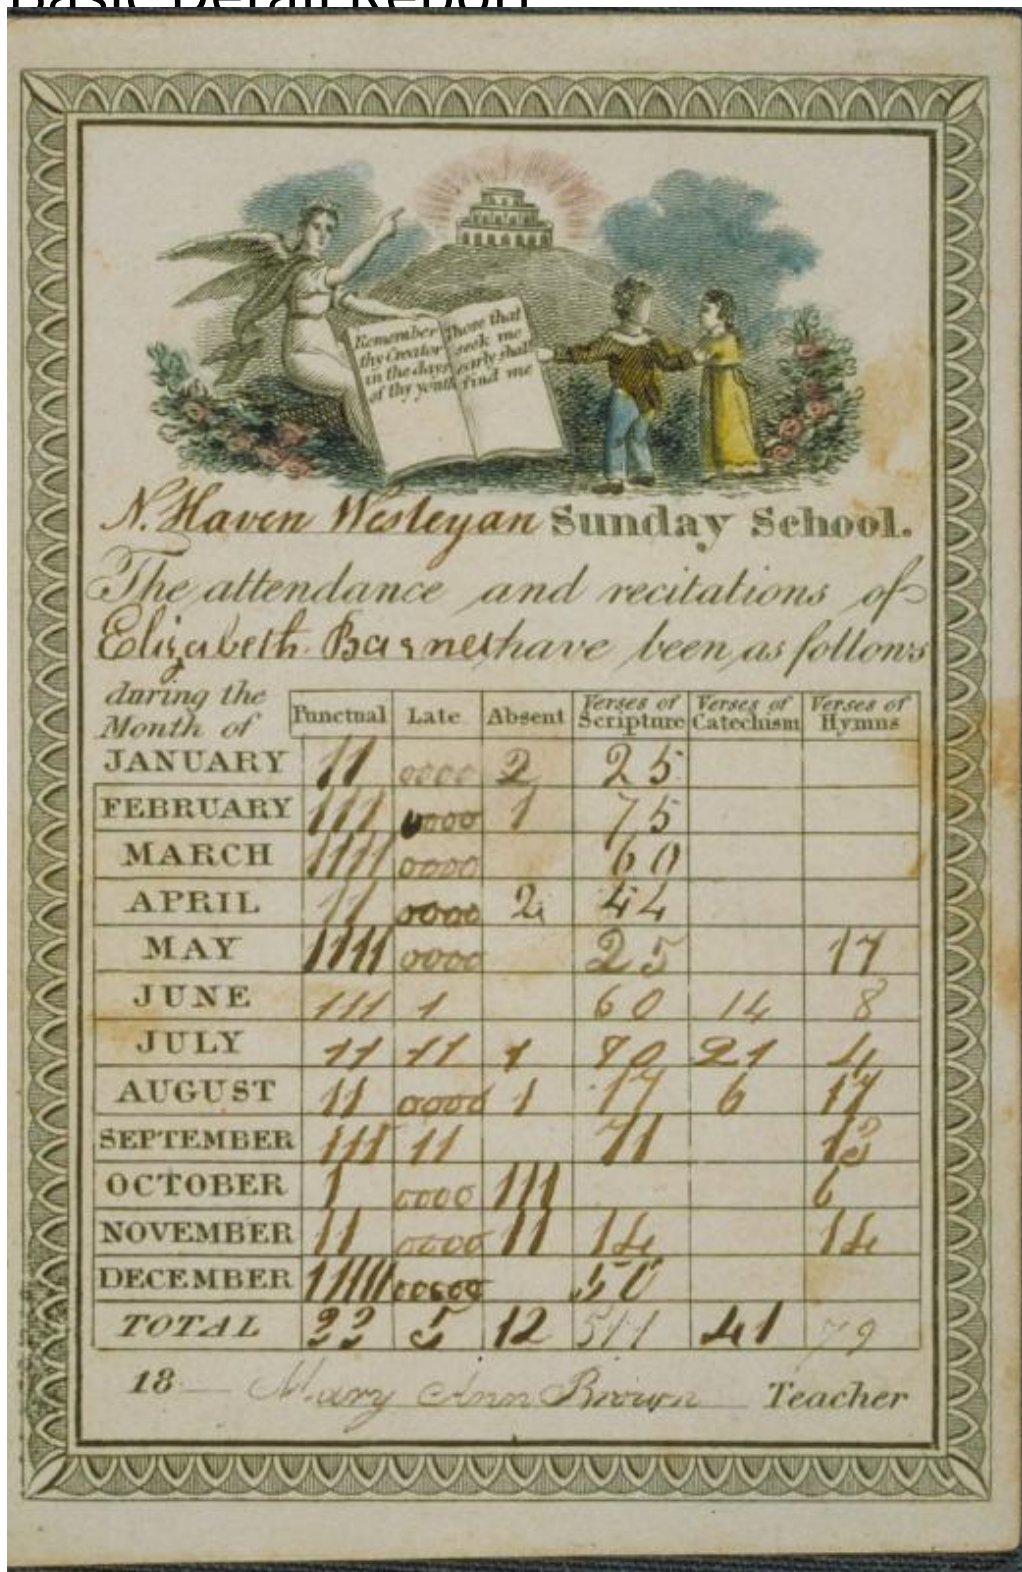 Basic Detail Report
Remember thy Creator in the days of thy youth
Those that seek me early shall find me
N. Haven Wesleyan Sunday School.
The attendance and recitations of
Elizabeth Barnes have been as follows
during the Month of Punctual Late Absent Verses of Scripture Verses of Catechism Verses of Hymns
JANUARY 11 0000 2 25
FEBRUARY 111 0000 1 75
MARCH 1111 0000 60
APRIL 11 0000 2 44
MAY 1111 0000 25 17
JUNE 111 1 60 14 8
JULY 11 11 1 70 21 4
AUGUST 11 0000 1 17 6 17
SEPTEMBER 111 11 71 13
OCTOBER 1 0000 111 6
NOVEMBER 11 0000 11 14 14
DECEMBER 11111 00000 50
TOTAL 33 5 12 511 41 79
18 Mary Ann Brown Teacher